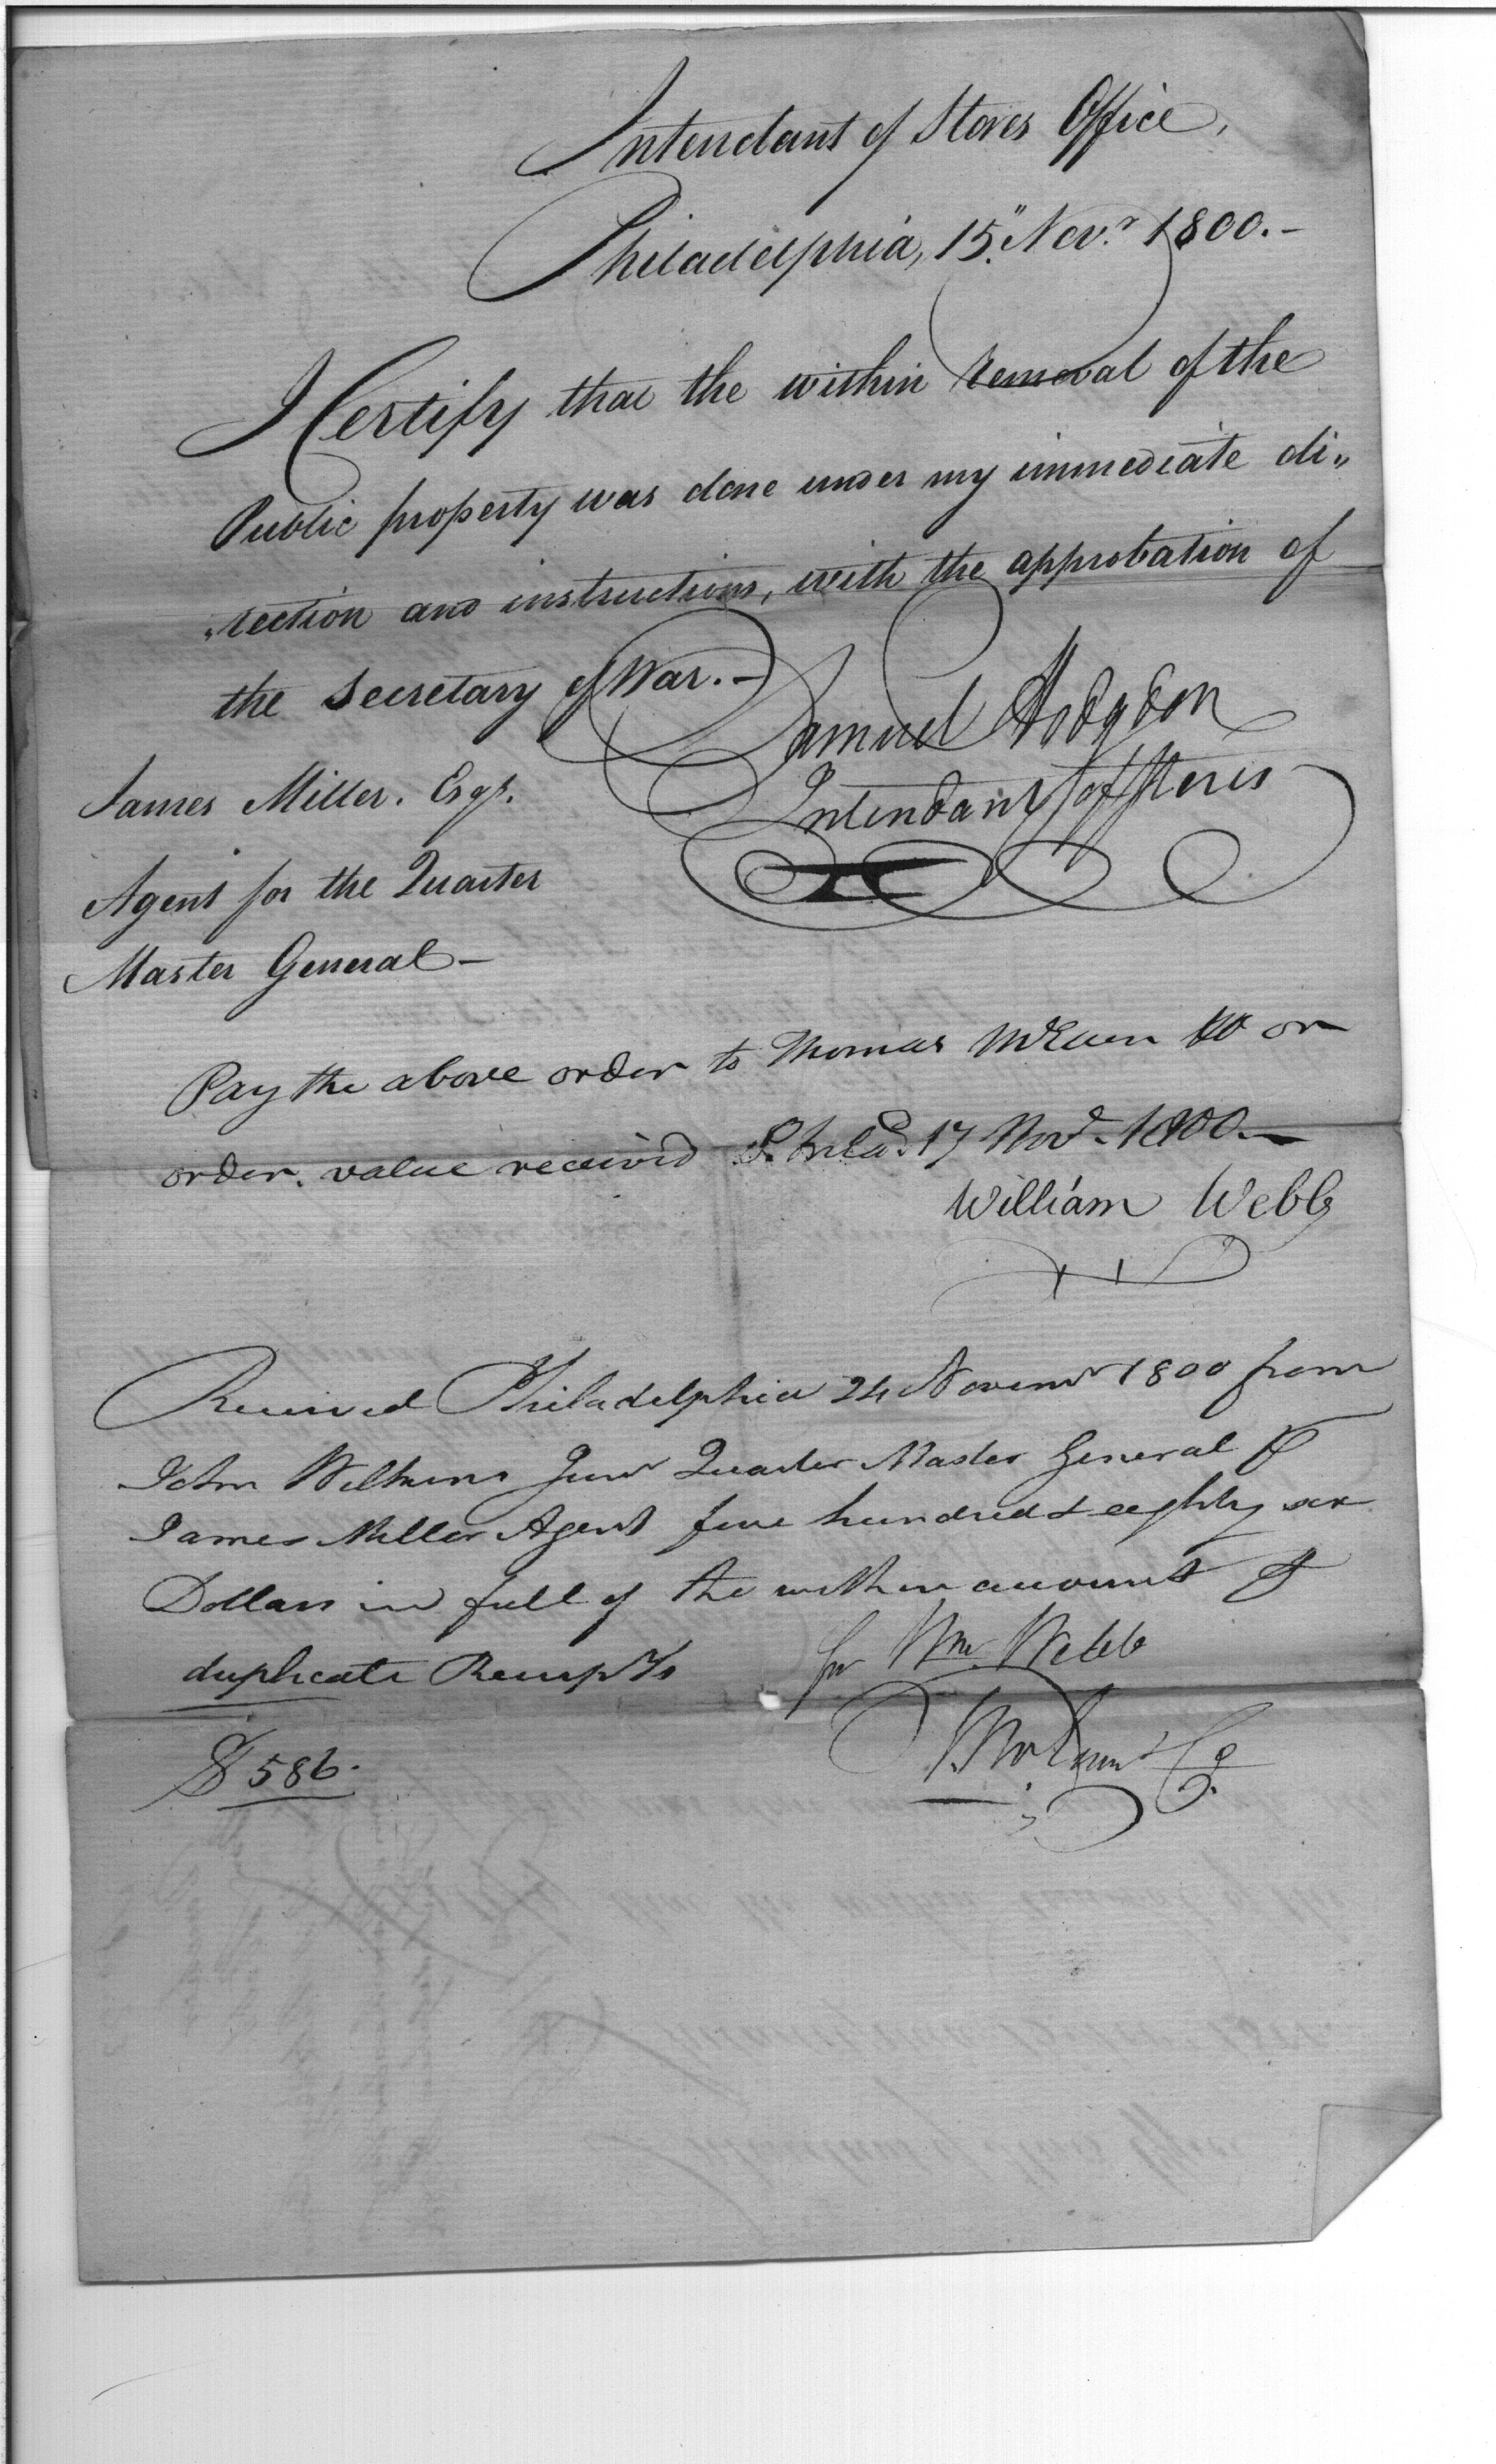 Intendant of Stores Office,
Philadelphia, 15" Nov.r 1800.-
I Certify that the within removal of the
Public property was done under my immediate di„
„rection and instructions, with the approbation of
the Secretary of War.-
Samuel Hodgdon
Intendant of Stores
James Miller. Esqr.
Agent for the Quarter
Master General-
Pay the above order to Thomas McEuen & Co or
order. value received Philad. 17 Novr. 1800.-
William Webb
Received Philadelphia 24 Novemr 1800 from
John Wilkins Junr Quarter Master General p
James Miller Agent five hundred & eighty six
Dollars in full of the within account
duplicate Receipts
for Wm. Webb
T. McEuen & Co.
$586.